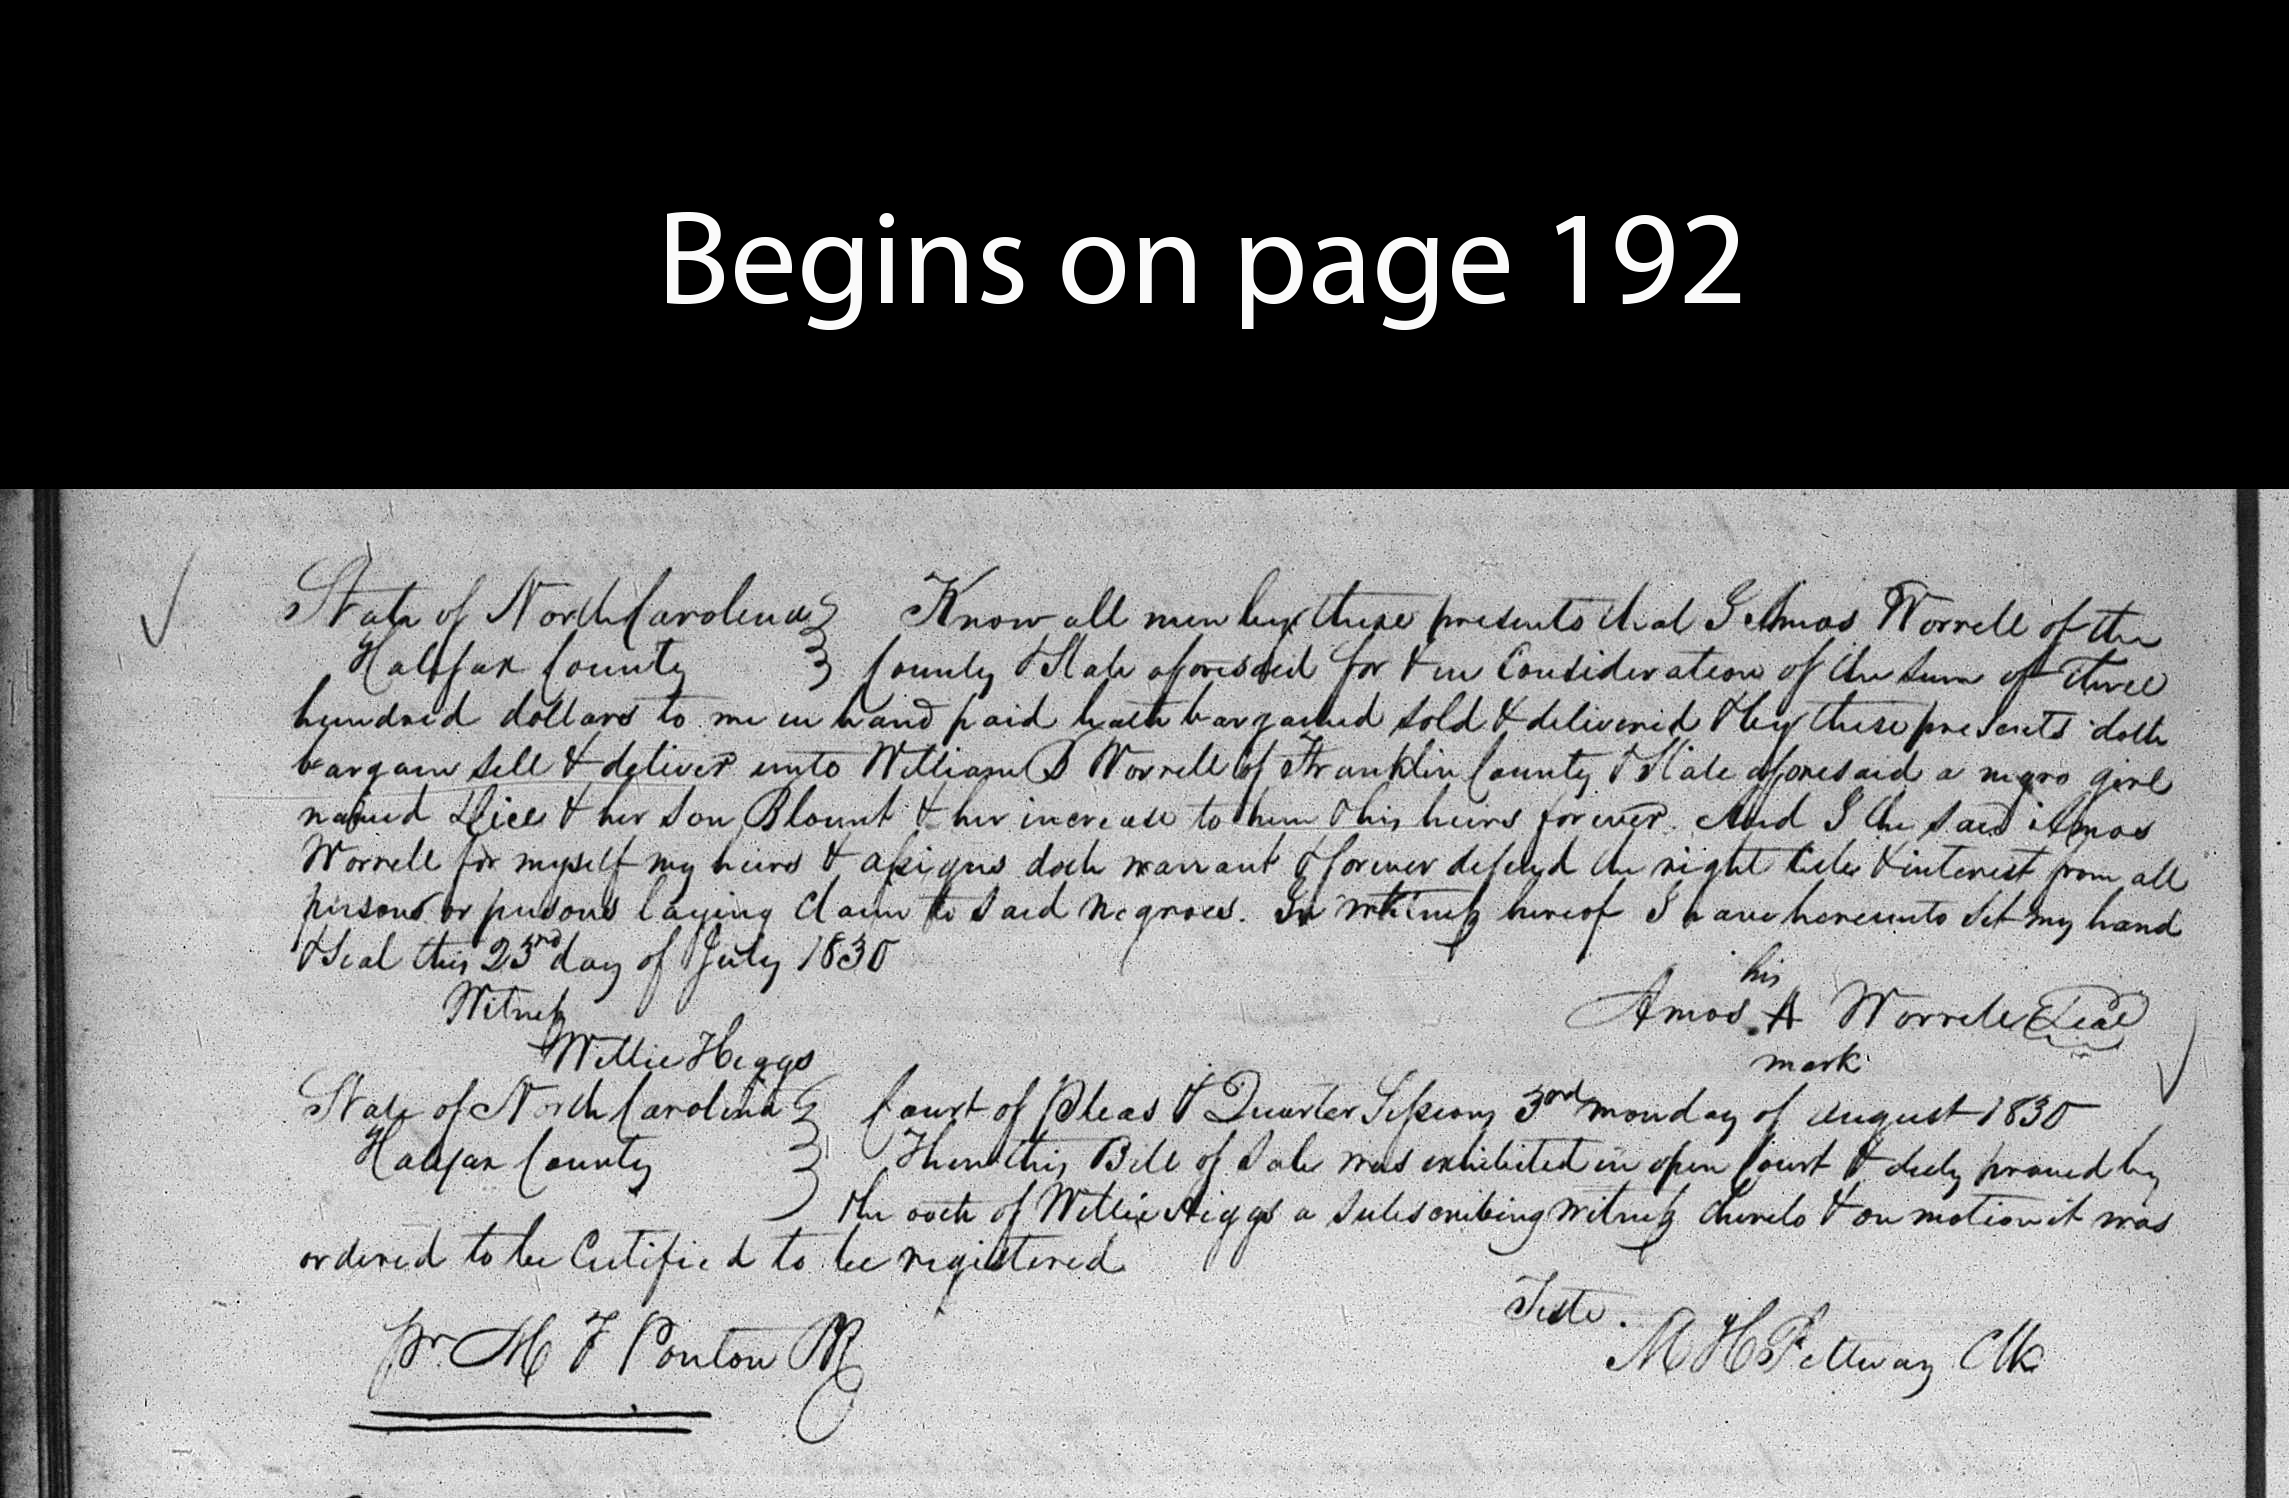 Begins on page 192
State of North Carolina } Know all men by these presents that I Amos Worrell of the
Halifax County } County & State aforesaid for & in Consideration of the sum of three
hundred dollars to me in hand paid hath bargained sold & delivered & by these presents doth
bargain sell & deliver unto William B Worrell of Franklin County & State aforesaid a negro girl
named Dice & her son Blount & her increase to him & his heirs forever. And I the said Amos
Worrell for myself my heirs & assigns doth warrant & forever defend the right title & interest from all
persons or persons laying claim to said Negroes. In witness hereof I have hereunto set my hand
& Seal this 23rd day of July 1830
his
Witness
Amos A Worrell Seal
Willie Higgs
mark
State of North Carolina } Court of Pleas & Quarter Sessions 3rd monday of august 1830
Halifax County } Then this Bill of Sale was exhibited in open Court & duly proved by
the oath of Willie Higgs a subscribing witness thereto & on motion it was
ordered to be Certified to be registered
Teste.
M H Pettway Clk
pr. M F Ponton PR